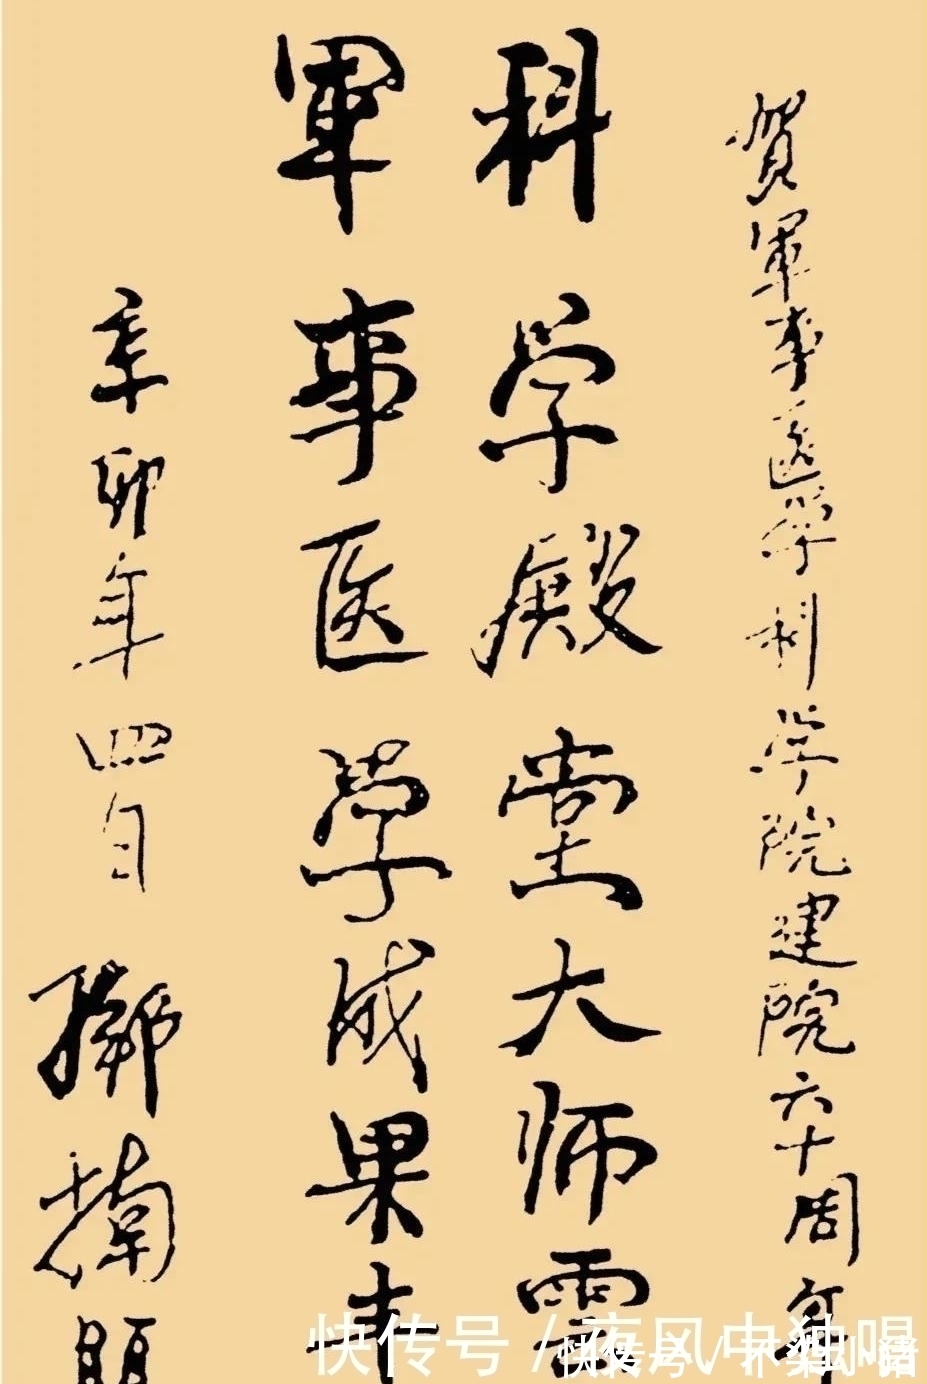 賀軍事医学科学院建院六十周年
科学殿堂大师雲
軍事医学成果丰
辛卯年四月 鄧楠
快传号 / 夜风中独唱
快传号 /